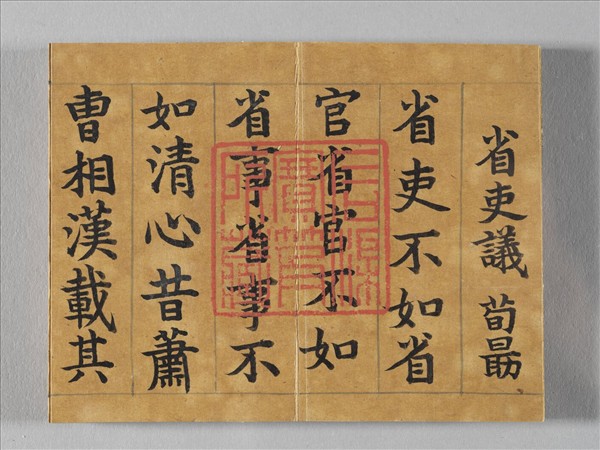 省吏議 荀勗
省吏不如省
官省官不如
省事省事不
如清心昔蕭
曹相漢載其